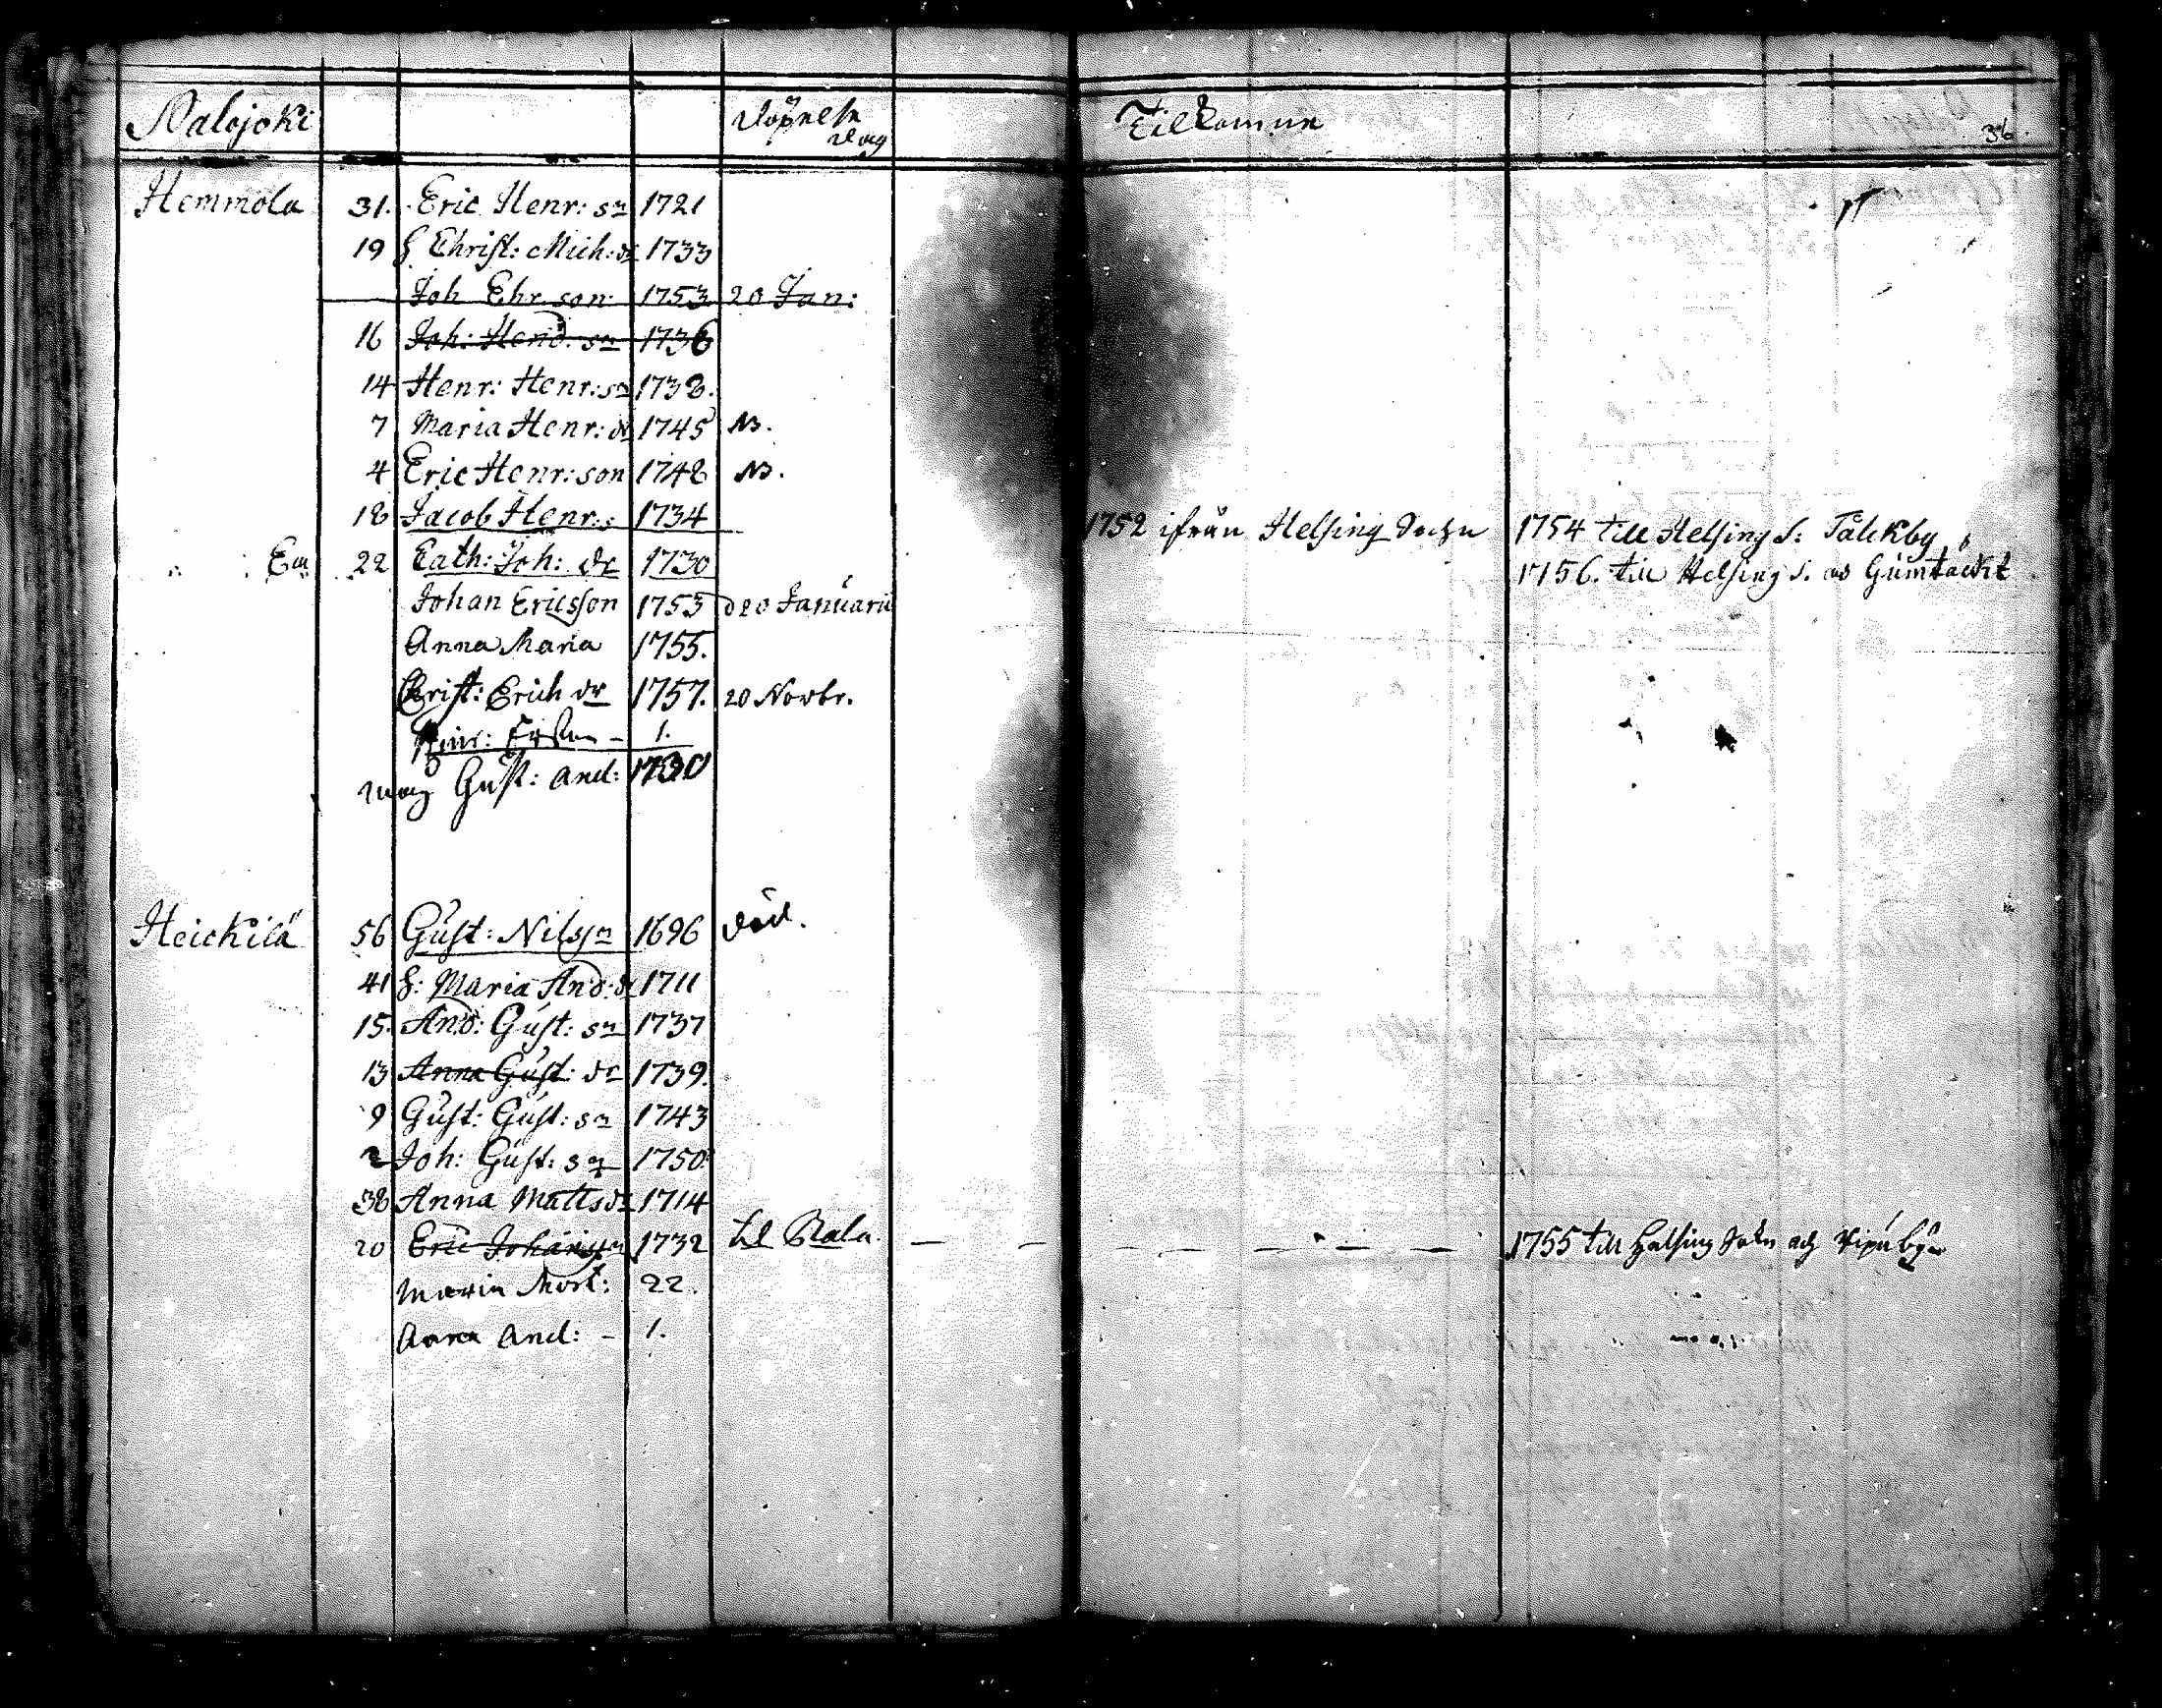 Palojoki Döpelse Dag Tilkomne 36.
Hemmola 31. Eric Henr: sn 1721
19 h Christ: Mich: dr 1733
Joh Ehr son 1753 20 Jan:
16 Joh: Hend: sn 1736
14 Henr: Henr: sn 1738.
7 Maria Henr: dr 1745 N.
4 Eric Henr: son 1748 N.
18 Jacob Henr: s 1734 1752 ifrån Helsing Sochn 1754 till Helsing S:
22 Cath: Joh: dr 1730 1756. till Helsing S.
Johan Ericsson 1753 d 20 Januarii
Anna Maria 1755.
Christ: Erich dr 1757. 20 Novbr.
1.
Gust: And: 1730
Heickilä 56 Gust: Nilssn 1696 död.
41 h: Maria And: dr 1711
15. And: Gust: sn 1737
13 Anna Gust: dr 1739.
9 Gust: Gust: sn 1743
2 Joh: Gust: sn 1750.
38 Anna Matts dr 1714
20 Eric Johanssn 1732 1755 till Helsing Sokn och
Maria Mart: 22.
Anna And: – 1.